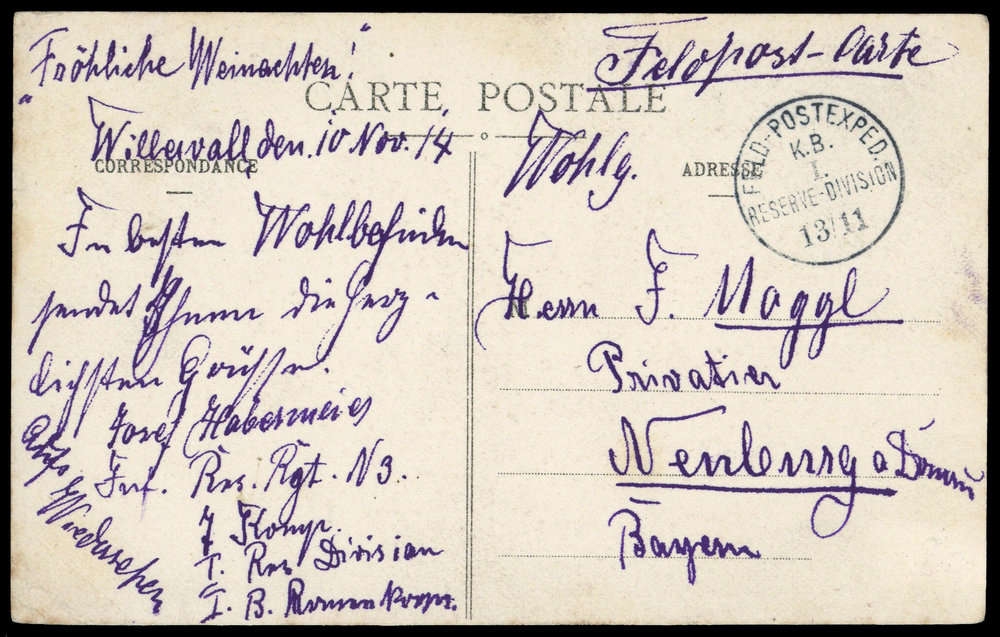 "Fröhliche Weinachten!"
Feldpost-Carte
CARTE POSTALE
Willerval, den. 10 Nov. 14
CORRESPONDANCE
ADRESSE
FELD-POSTEXPED.
K.B.
I.
RESERVE-DIVISION
13/11
Wohlg.
In besten Wohlbefinden
sendet Ihnen die herz-
lichsten Grüsse.
Josef Habermeier
Inf. Res. Rgt. N3.
7 Komp.
I. Res Division
I. B. Armeekorps.
Aufs Wiedersehen
Herrn J. Moggl
Privatier
Neuburg a Donau
Bayern